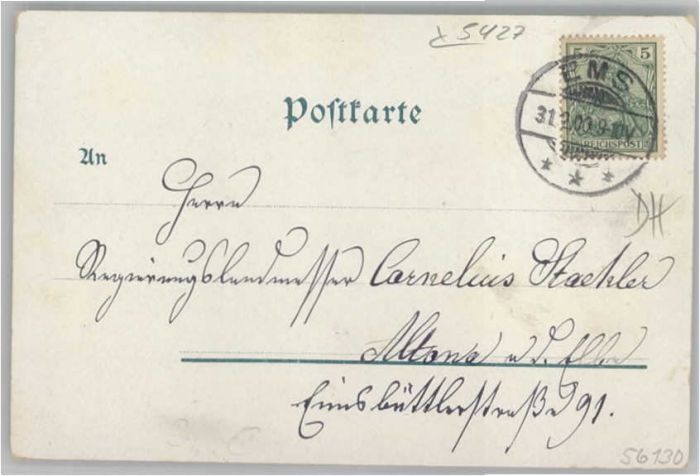 x 5427
5 5
EMS
31. .00.9-10V
REICHSPOST
Postkarte
An
Herrn
DH
Regierungslandmesser Cornelius Staehler
Altona a. d. Elbe
Eimsbüttlerstraße 91.
56130